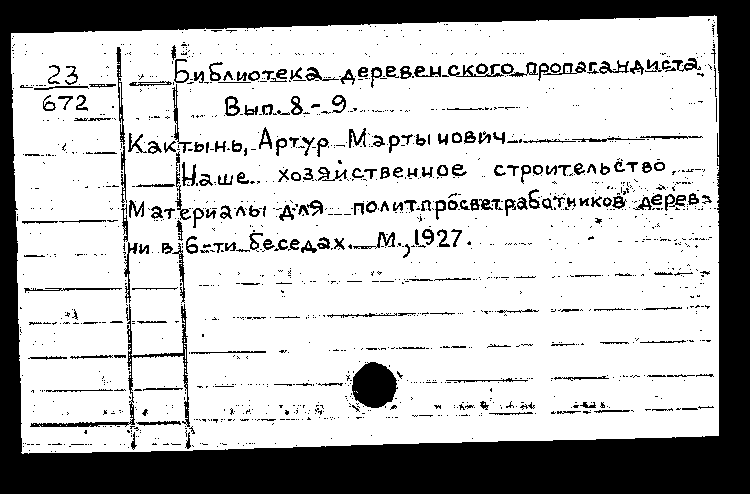 23
672
Библиотека деревенского пропагандиста.
Вып. 8-9.
Кактынь, Артур Мартынович
Наше хозяйственное строительство.
Материалы для политпросветработников дерев-
ни в 6-ти беседах. М., 1927.